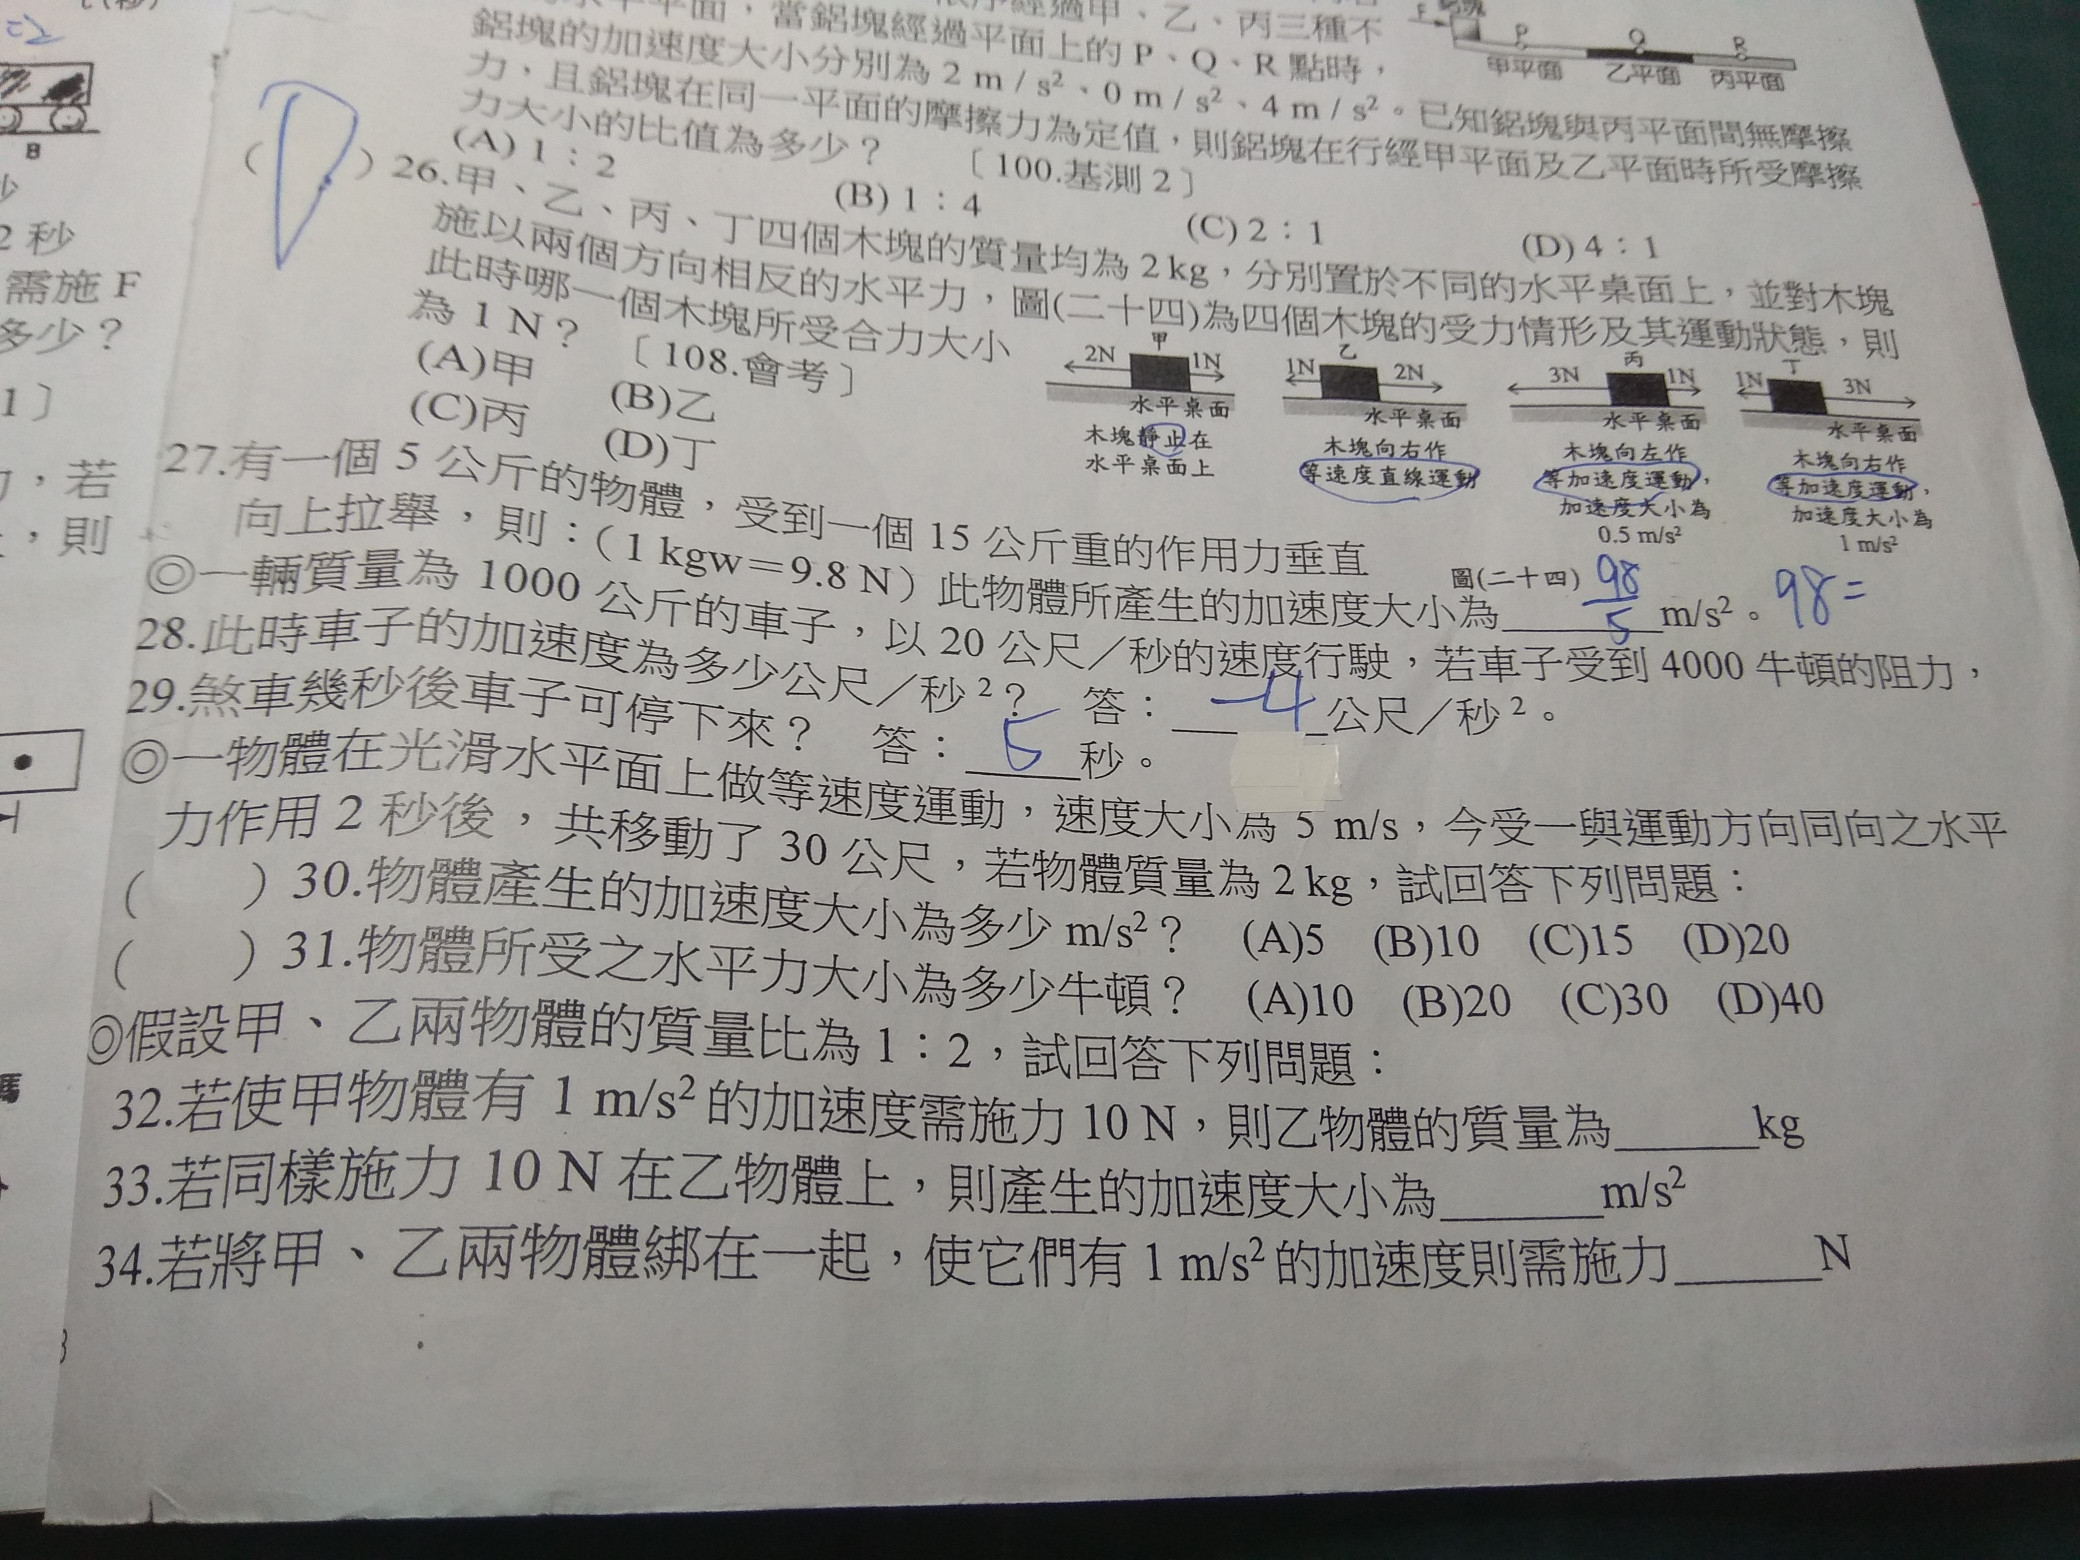 鋁塊的加速度大小分別為 2 m/s²、0 m/s²、4 m/s²。已知鋁塊與丙平面間無摩擦
力，且鋁塊在同一平面的摩擦力為定值，則鋁塊在行經甲平面及乙平面時所受摩擦
力大小的比值為多少？ 〔100.基測2〕
(A) 1：2 (B) 1：4 (C) 2：1 (D) 4：1
P Q R
甲平面 乙平面 丙平面
( D ) 26.甲、乙、丙、丁四個木塊的質量均為 2 kg，分別置於不同的水平桌面上，並對木塊
施以兩個方向相反的水平力，圖(二十四)為四個木塊的受力情形及其運動狀態，則
此時哪一個木塊所受合力大小
為 1 N？ 〔108.會考〕
(A)甲 (B)乙
(C)丙 (D)丁
2N 甲 1N
水平桌面
木塊靜止在
水平桌面上
1N 乙 2N
水平桌面
木塊向右作
等速度直線運動
3N 丙 1N
水平桌面
木塊向左作
等加速度運動，
加速度大小為
0.5 m/s²
1N 丁 3N
水平桌面
木塊向右作
等加速度運動，
加速度大小為
1 m/s²
圖(二十四)
27.有一個 5 公斤的物體，受到一個 15 公斤重的作用力垂直
向上拉舉，則：（1 kgw＝9.8 N）此物體所產生的加速度大小為 98/5 m/s²。 98=
◎一輛質量為 1000 公斤的車子，以 20 公尺／秒的速度行駛，若車子受到 4000 牛頓的阻力，
28.此時車子的加速度為多少公尺／秒²？ 答： -4 公尺／秒²。
29.煞車幾秒後車子可停下來？ 答： 5 秒。
◎一物體在光滑水平面上做等速度運動，速度大小為 5 m/s，今受一與運動方向同向之水平
力作用 2 秒後，共移動了 30 公尺，若物體質量為 2 kg，試回答下列問題：
( ) 30.物體產生的加速度大小為多少 m/s²？ (A)5 (B)10 (C)15 (D)20
( ) 31.物體所受之水平力大小為多少牛頓？ (A)10 (B)20 (C)30 (D)40
◎假設甲、乙兩物體的質量比為 1：2，試回答下列問題：
32.若使甲物體有 1 m/s² 的加速度需施力 10 N，則乙物體的質量為______kg
33.若同樣施力 10 N 在乙物體上，則產生的加速度大小為______m/s²
34.若將甲、乙兩物體綁在一起，使它們有 1 m/s² 的加速度則需施力______N
B
2 秒
需施 F
多少？
1〕
，若
，則